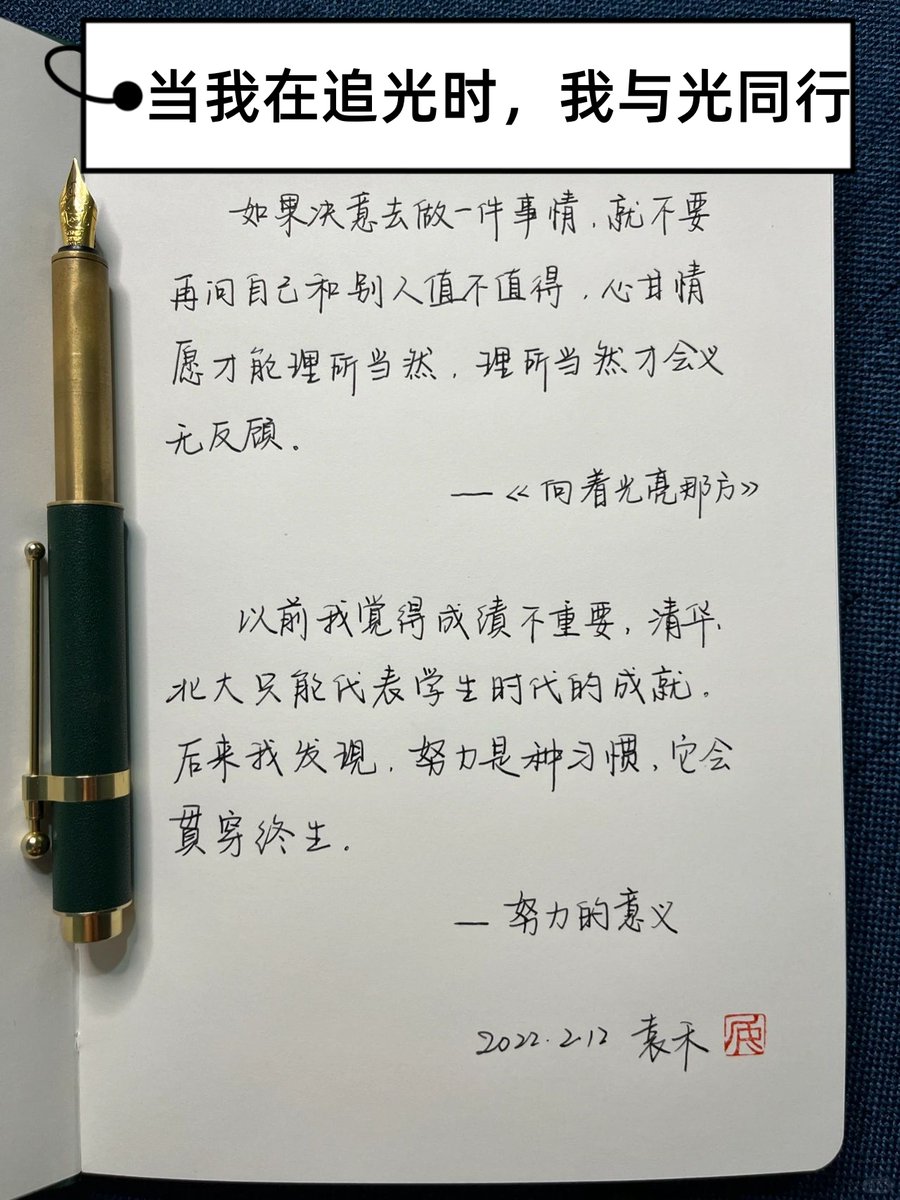 当我在追光时，我与光同行
如果决意去做一件事情，就不要
再问自己和别人值不值得，心甘情
愿才能理所当然，理所当然才会义
无反顾。
—《向着光亮那方》
以前我觉得成绩不重要，清华、
北大只能代表学生时代的成就。
后来我发现，努力是种习惯，它会
贯穿终生。
—努力的意义
2022.2.12 袁禾